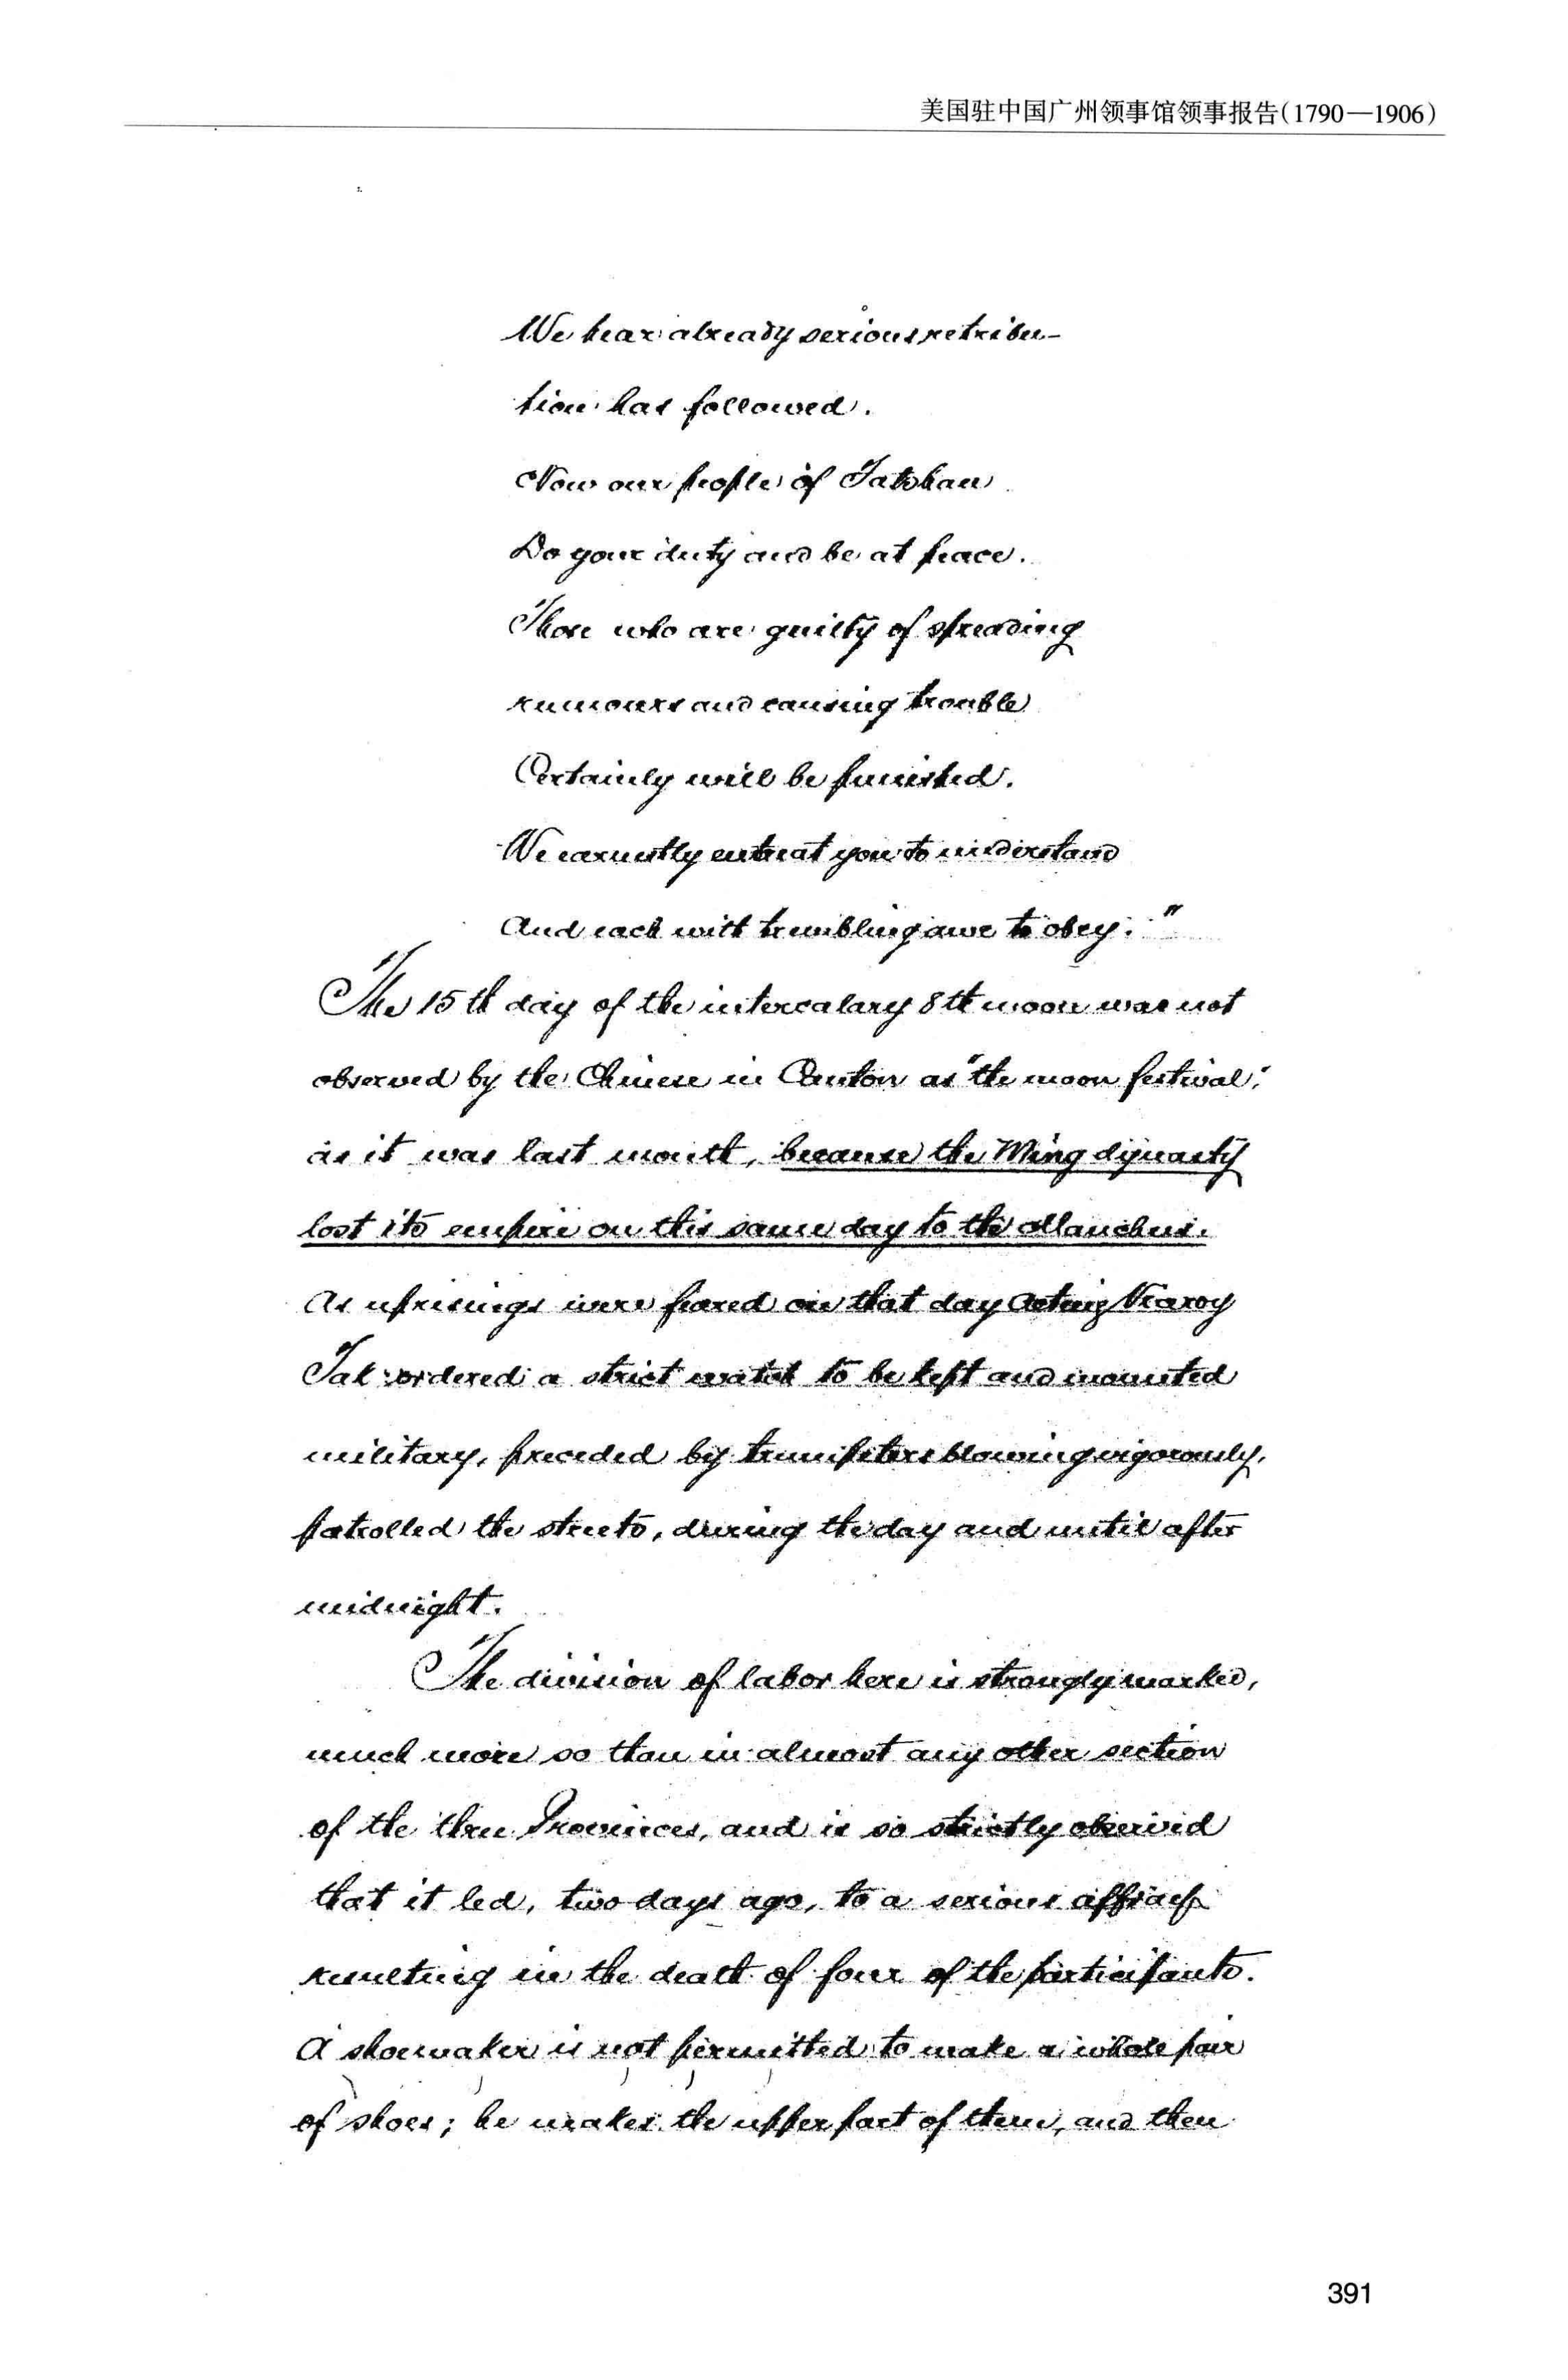 美国驻中国广州领事馆领事报告(1790—1906)
We hear already serious retribu-
tion has followed.
Now our people of Fatshan
Do your duty and be at peace.
Those who are guilty of spreading
rumours and causing trouble
Certainly will be punished.
We earnestly entreat you to understand
And each with trembling awe to obey."
The 15th day of the intercalary 8th moon was not
observed by the Chinese in Canton as "the moon festival,"
as it was last month, because the Ming dynasty
lost its empire on this same day to the Manchus.
As uprisings were feared on that day Acting Viceroy
Tak ordered a strict watch to be kept and mounted
military, preceded by trumpeters blowing vigorously,
patrolled the streets, during the day and until after
midnight.
The division of labor here is strongly marked,
much more so than in almost any other section
of the three Provinces, and is so strictly observed
that it led, two days ago, to a serious affray
resulting in the death of four of the participants.
A shoemaker is not permitted to make a whole pair
of shoes; he makes the upper part of them, and then
391